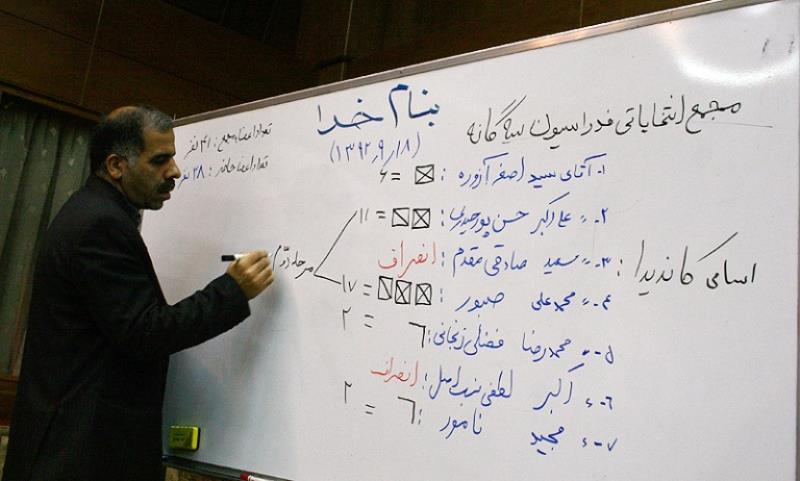 بنام خدا
(۱۳۹۲,۹,۱۸)
مجمع انتخاباتی فدراسیون سه گانه
تعداد اعضا مجمع: ۴۱ نفر
تعداد اعضا حاضر: ۳۸ نفر
اسامی کاندیدا:
۱- آقای سید اصغر آزوره: = ۶
۲- علی اکبر حسن پور حیدری: = ۱۱
۳- سعید صادقی مقدم: انصراف
۴- محمدعلی صبور: = ۱۷
۵- محمدرضا فضلی زنجانی: = ۲
۶- اکبر لطفی: انصراف
۷- مجید نامور: = ۲
مرحله دوم